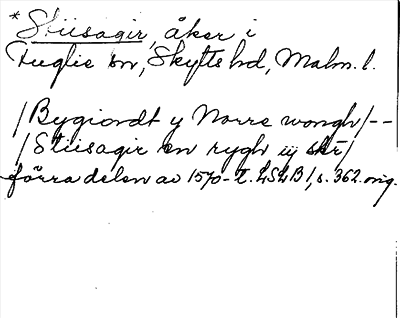 * Stiisagir, åker i
Fuglie sn, Skytts hd, Malm. l.
/Bygiordt y Norre wongh/--
/Stiisagir en rygh iij skr/
förra delen av 1570-t. LSLB 1, s. 362. orig.